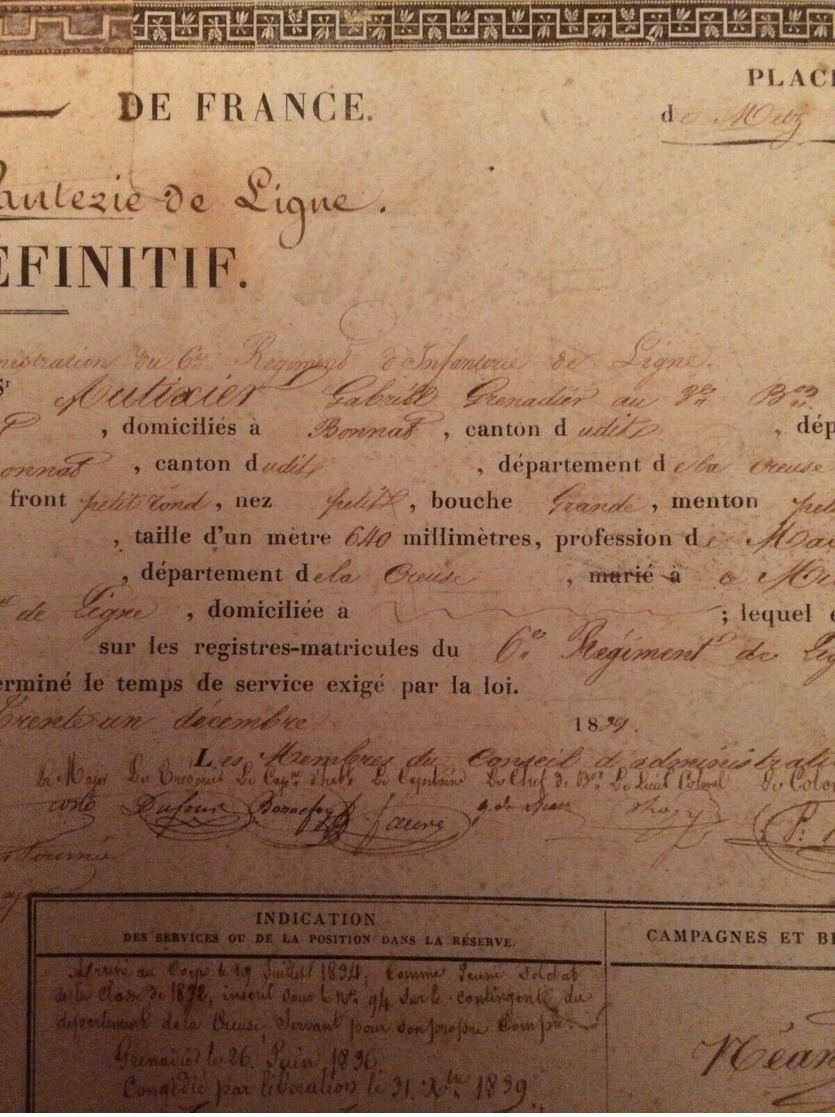 DE FRANCE.
PLAC
de Metz
anterie de Ligne.
ÉFINITIF.
nistration du 6e Regiment d'Infanterie de Ligne.
Sr Autixier Gabriel Grenadier au 3e Bon
, domiciliés à Bonnat, canton dudit, dép
onnat, canton dudit, département de la Creuse
front petit rond, nez petit, bouche Grande, menton
, taille d'un mètre 640 millimètres, profession de Ma
, département de la Creuse, marié à
de Ligne, domiciliée à ; lequel
sur les registres-matricules du 6e Regiment de Lig
erminé le temps de service exigé par la loi.
Trente un décembre 1839.
Les Membres du Conseil d'administrati
Le Major Le Trésorier Le Capne d'habt Le Capitaine Le Chef de Bon Le Lieut Colonel Le Colon
Dufour Bonnefoy Faure
INDICATION
DES SERVICES OU DE LA POSITION DANS LA RÉSERVE.
CAMPAGNES ET B
Arrivé au Corps le 19 Juillet 1834, Comme Jeune Soldat
de la Classe de 1832, inscrit sous le No 94 sur le contingent du
département de la Creuse, Servant pour son propre Compte.
Grenadier le 26 Juin 1836.
Congédié par libération le 31 Xbre 1839.
Néan